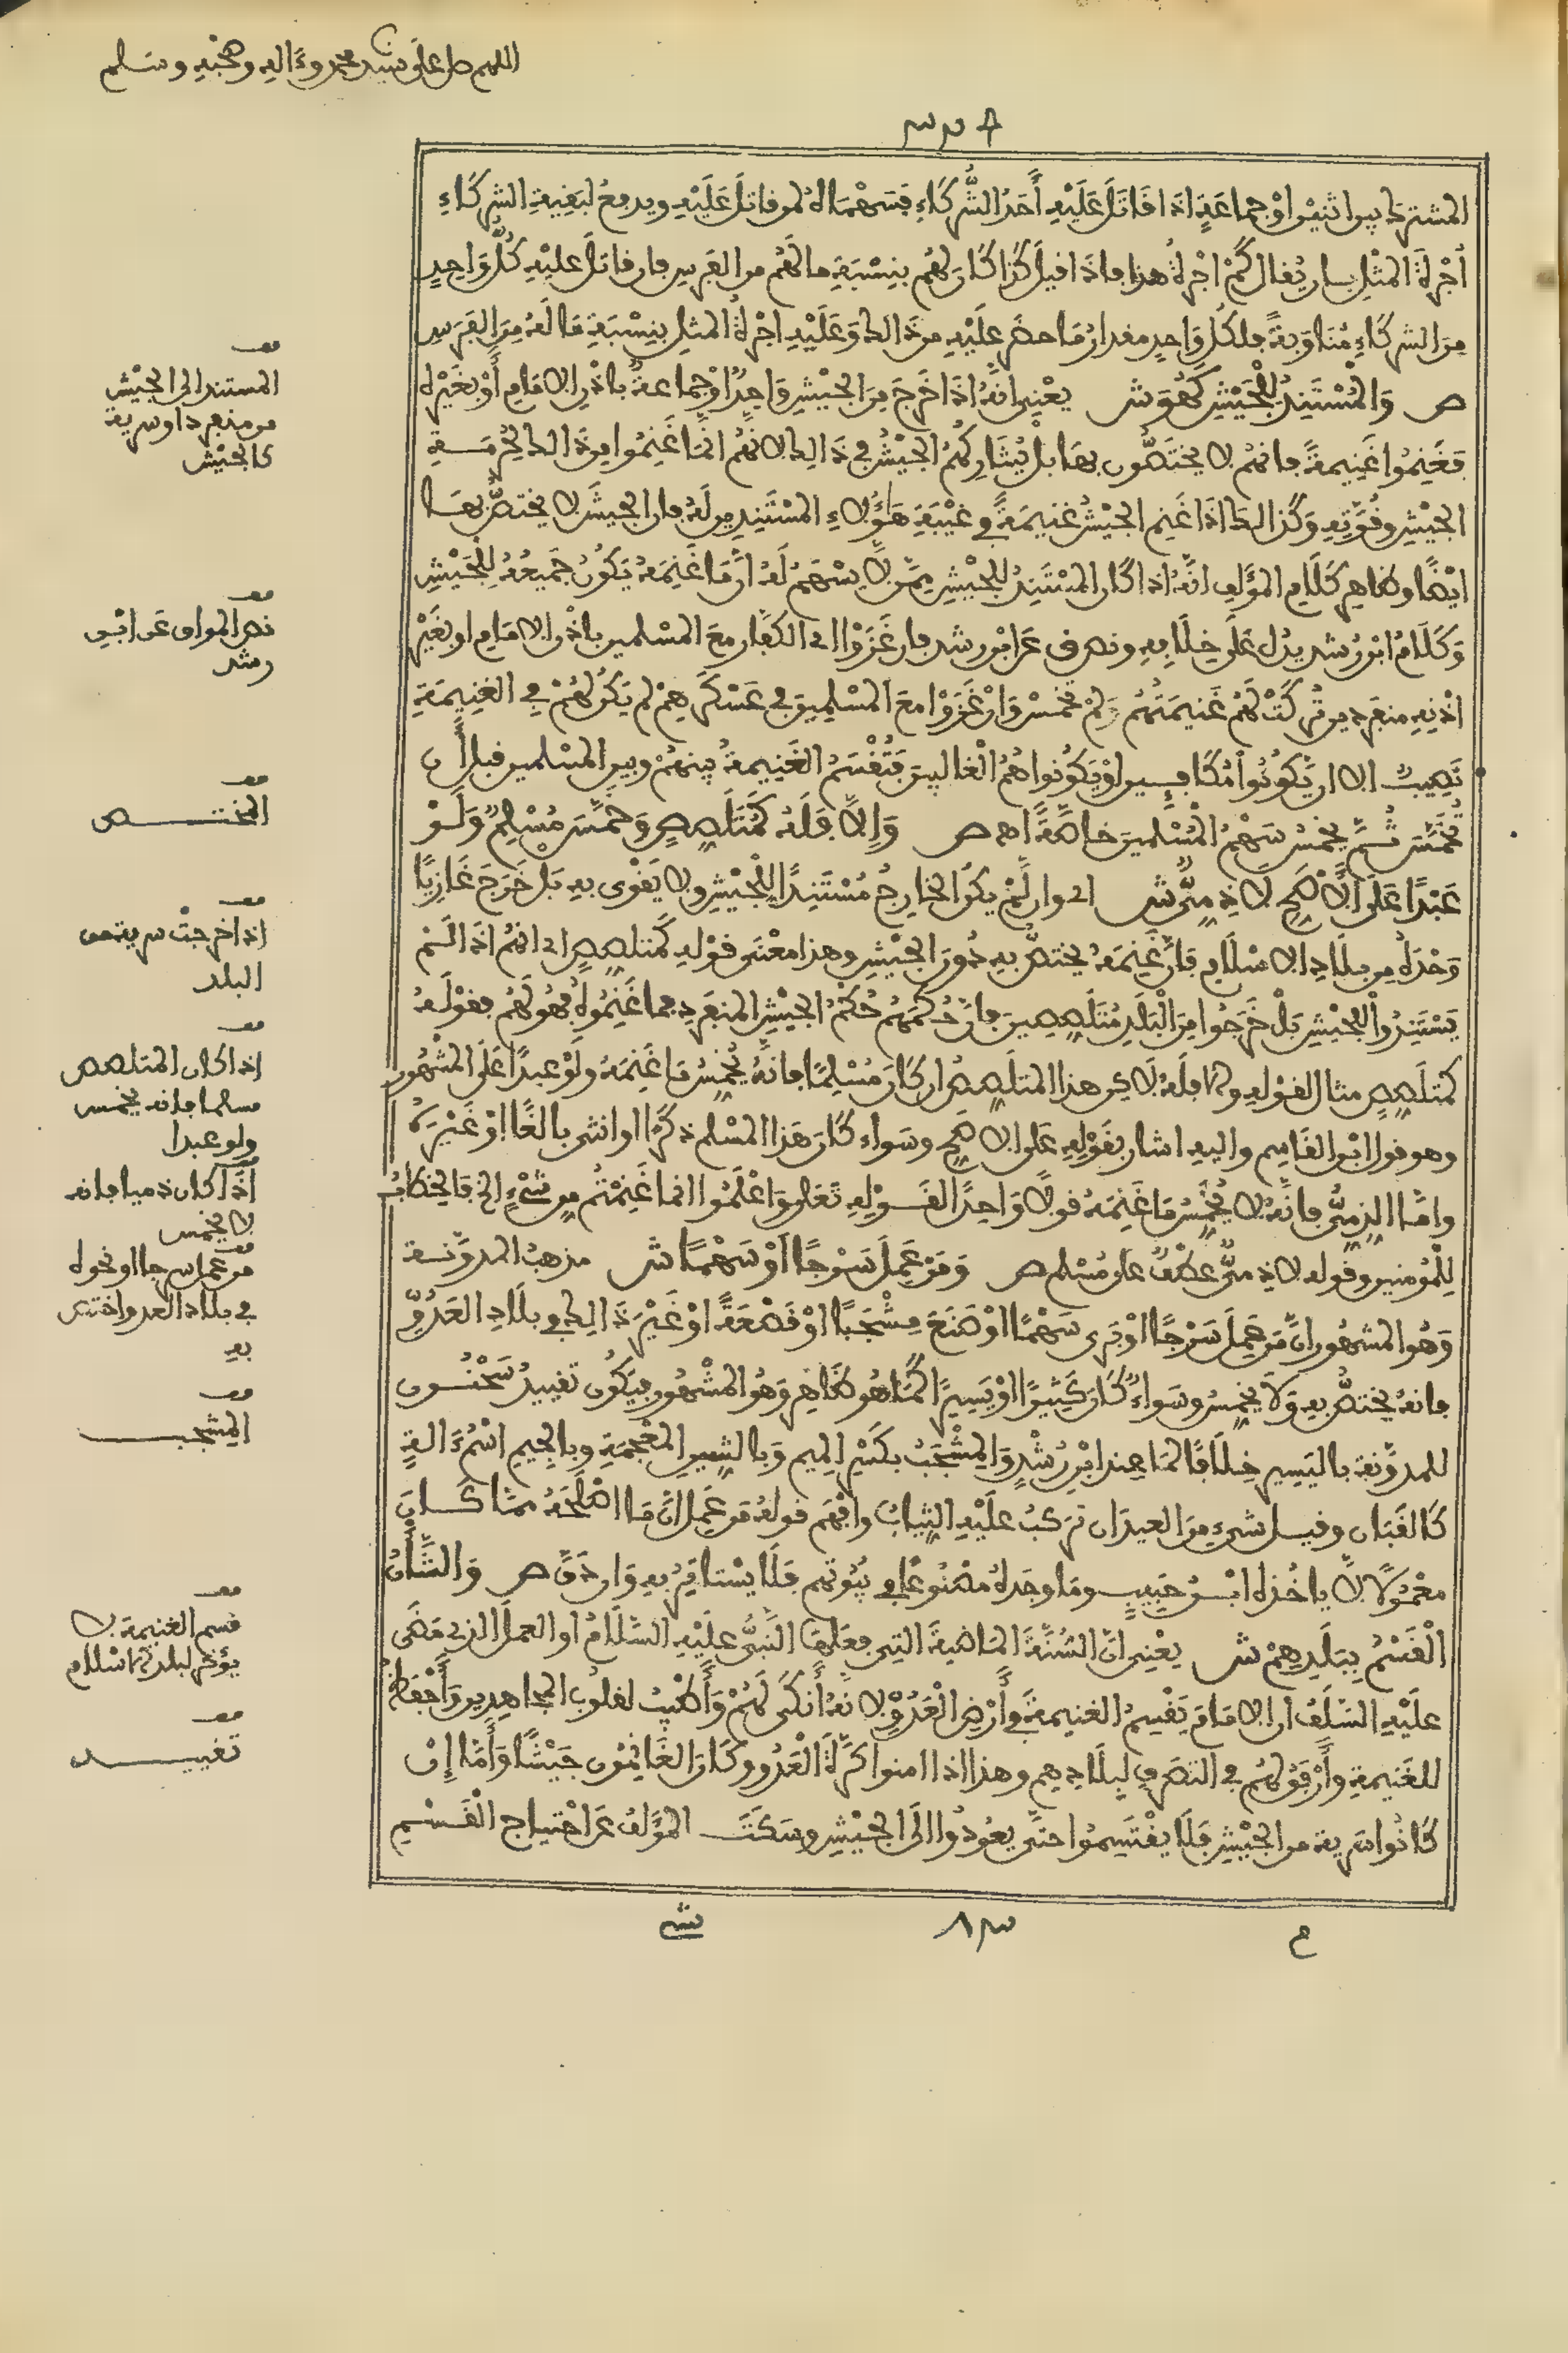 اللهم صل على سيدنا محمد وءاله وصحبه وسلم
المشترك بين اثنين او جماعة اذا قاتل عليه أحد الشركاء فسهماه لمن قاتل عليه ويدفع لبقية الشركاء
أجرة المثل بان يقال كم اجرة هذا فاذا قيل كذا كان لهم بنسبة مالهم من الفرس فان قاتل عليه كل واحد
من الشركاء مناوبة فلكل واحد مقدار ما حضر عليه من ذالك وعليه اجرة المثل بنسبة ما لغيره من الفرس
ص والمستند للجيش كهو ش يعني انه اذا خرج من الجيش واحد او جماعة باذن الامام أو بغيره
فغنموا غنيمة فانهم لا يختصون بها بل يشاركهم الجيش في ذالك لانهم انما غنموا من ذالك لحرمــة
الجيش وقوته وكذالك اذا غنم الجيش غنيمة في غيبة هؤلاء المستندين له فان الجيش لا يختص بهــا
ايضا وظاهر كلام المؤلف انه اذا كان المستند للجيش ممن لا يسهم له أن ما غنمه يكون جميعه للجيش
وكلام ابن رشد يدل على خلافه ونص ق عن ابن رشد فان غزوا اى الكفار مع المسلمين باذن الامام او بغير
اذنه منفردين تركت لهم غنيمتهم ولم تخمس وان غزوا مع المسلمين في عسكرهم لم يكن لهم في الغنيمة
نصيب الا ان يكونوا مكافيــن او يكونوا هم الغالبين فتقسم الغنيمة بينهم وبين المسلمين قبل أن
تخمس ثم يخمس سهم المسلمين خاصة اه ص وإلا فله كمتلصص وخمس مسلم ولــو
عبدا على الأصح لا ذمى ش اى وان لم يكن الخارج مستندا للجيش ولا يقوى به بل خرج غازيا
وحده من بلاد الاسلام فان غنمه يختص به دون الجيش وهذا معنى قوله كمتلصص اى انهم اذا لــم
يستندوا للجيش بل خرجوا من البلد متلصصين فان حكمهم حكم الجيش المنفرد فما غنموه فهو لهم فقوله
كمتلصص مثال لقوله والا فله لاكن هذا المتلصص ان كان مسلما فانه يخمس ما غنمه ولو عبدا على المشهور
وهو قول ابن القاسم واليه اشار بقوله على الاصح وسواء كان هذا المسلم ذكرا او انثى بالغا او غيره
واما الذمى فانه لا يخمس ما غنمه قولا واحدا لقــوله تعلى واعلموا انما غنمتم من شيء الخ فالخطاب
للمومنين وقوله لا ذمى عطف على مسلم ص ومن عمل سرجا او سهما ش مذهب المدونــة
وهو المشهور ان من عمل سرجا او برى سهما او صنع مشجبا او قصعة او غير ذالك في بلاد العدو
فانه يختص به ولا يخمس وسواء كان كثيرا او يسيرا كما هو ظاهر وهو المشهور فيكون تقييد سحنــون
للمدونة باليسير خلافا لما عند ابن رشد والمشجب بكسر الميم وبالشين المعجمة وبالجيم اسم ءالة
كالقبان وقيــل شيء من العيدان تركب عليه الثياب وافهم قوله من عمل ان ما اصلحه مما كــان
معمولا لا ياخذه ابــن حبيب وما وجده مصنوعا في بيوتهم فلا يستاثر به وان دق ص والشأن
القسم ببلدهم ش يعني ان السنة الماضية التي فعلها النبي عليه السلام او العمل الذي مضى
عليه السلف ان الامام يقسم الغنيمة في أرض العدو لانه أنكى لهم وأطيب لقلوب المجاهدين وأحفظ
للغنيمة وأرفق لهم في التصرف لبلادهم وهذا اذا امنوا كرة العدو وكان الغانمون جيشا وأما إن
كانوا سرية من الجيش فلا يقتسموا حتى يعودوا الى الجيش وسكت المؤلف عن احتياج القسم
قف
المستند الى الجيش
من منفرد او سرية
كالجيش
قف
نص المواق عن ابن
رشد
قف
المختــص
قف
اذا خرجت سرية من
البلد
قف
اذا كان المتلصص
مسلما فانه يخمس
ولو عبدا
قف
اذا كان ذميا فانه
لا يخمس
قف
من عمل سرجا او نحوه
في بلاد العدو اختص
به
قف
المشجــب
قف
قسم الغنيمة لا
يؤخر لبلد الاسلام
قف
تقييــد